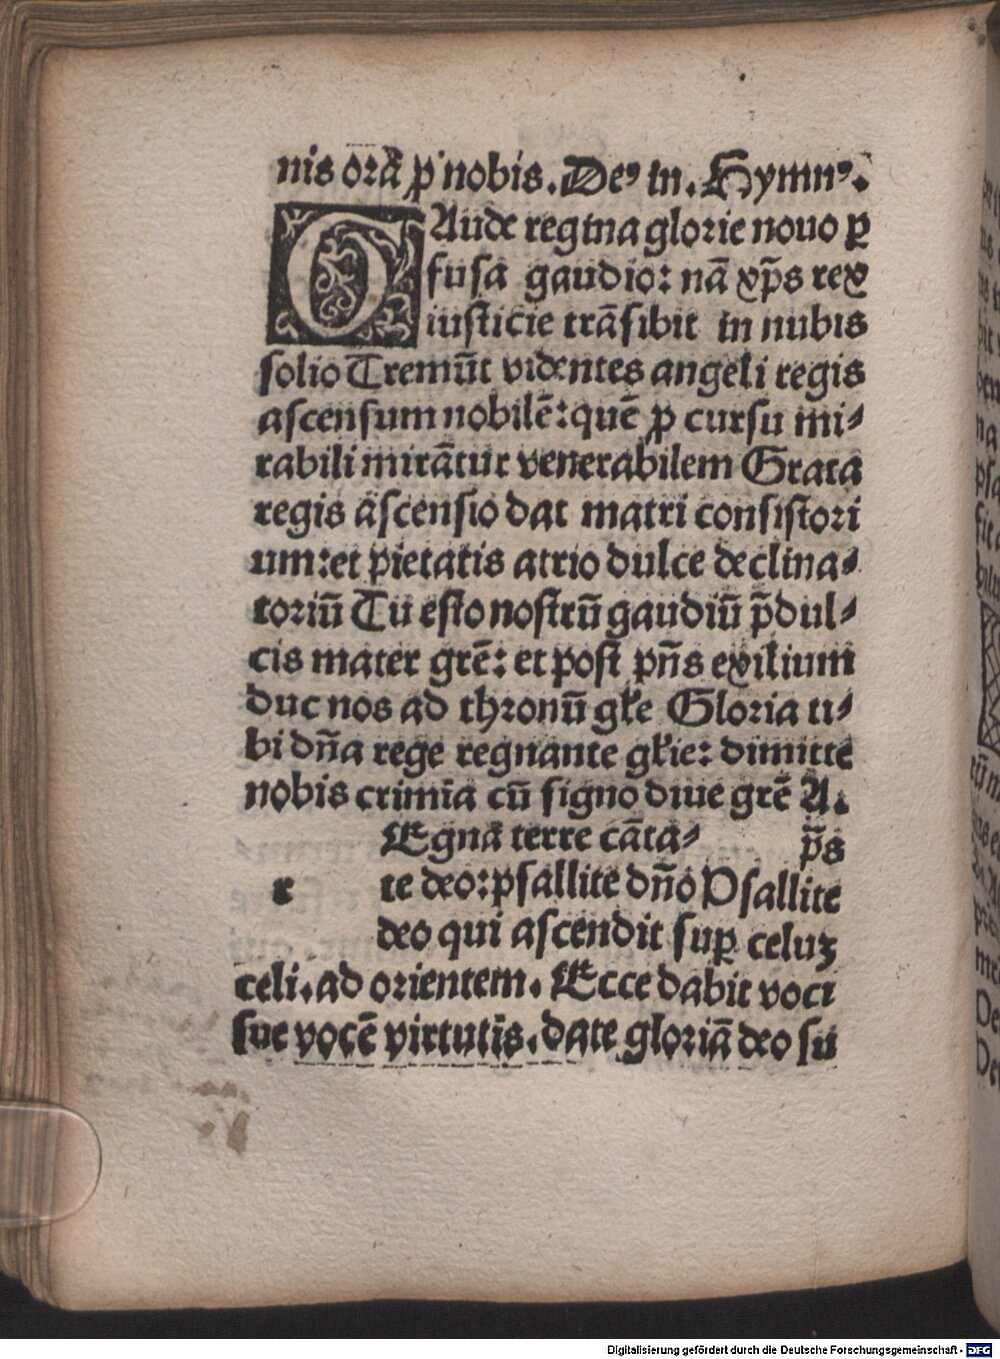 nis orā p̱ nobis. De⁹ in. Hymn⁹.
OAude regina glorie nouo ꝑ
fusa gaudio: nā xp̄s rex
iusticie trāsibit in nubis
solio Tremūt videntes angeli regis
ascensum nobilē: quē ꝑ cursu mi⸗
rabili mirātur venerabilem Grata
regis āscensio dat matri consistori
um: et pietatis atrio dulce declina⸗
toriū Tu esto nostrū gaudiū p̄dul⸗
cis mater grē: et post pn̄s exilium
duc nos ad thronū gl̄e Gloria ti⸗
bi dn̄a rege regnante gl̄ie: dimitte
nobis crimīa cū signo diue grē A.
Egna terre cāta⸗ p̄s
r te deo: psallite dn̄o Psallite
deo qui ascendit suꝑ celuꝫ
celi. ad orientem. Ecce dabit voci
sue vocē virtutis. date gloriā deo su
Digitalisierung gefördert durch die Deutsche Forschungsgemeinschaft - DFG